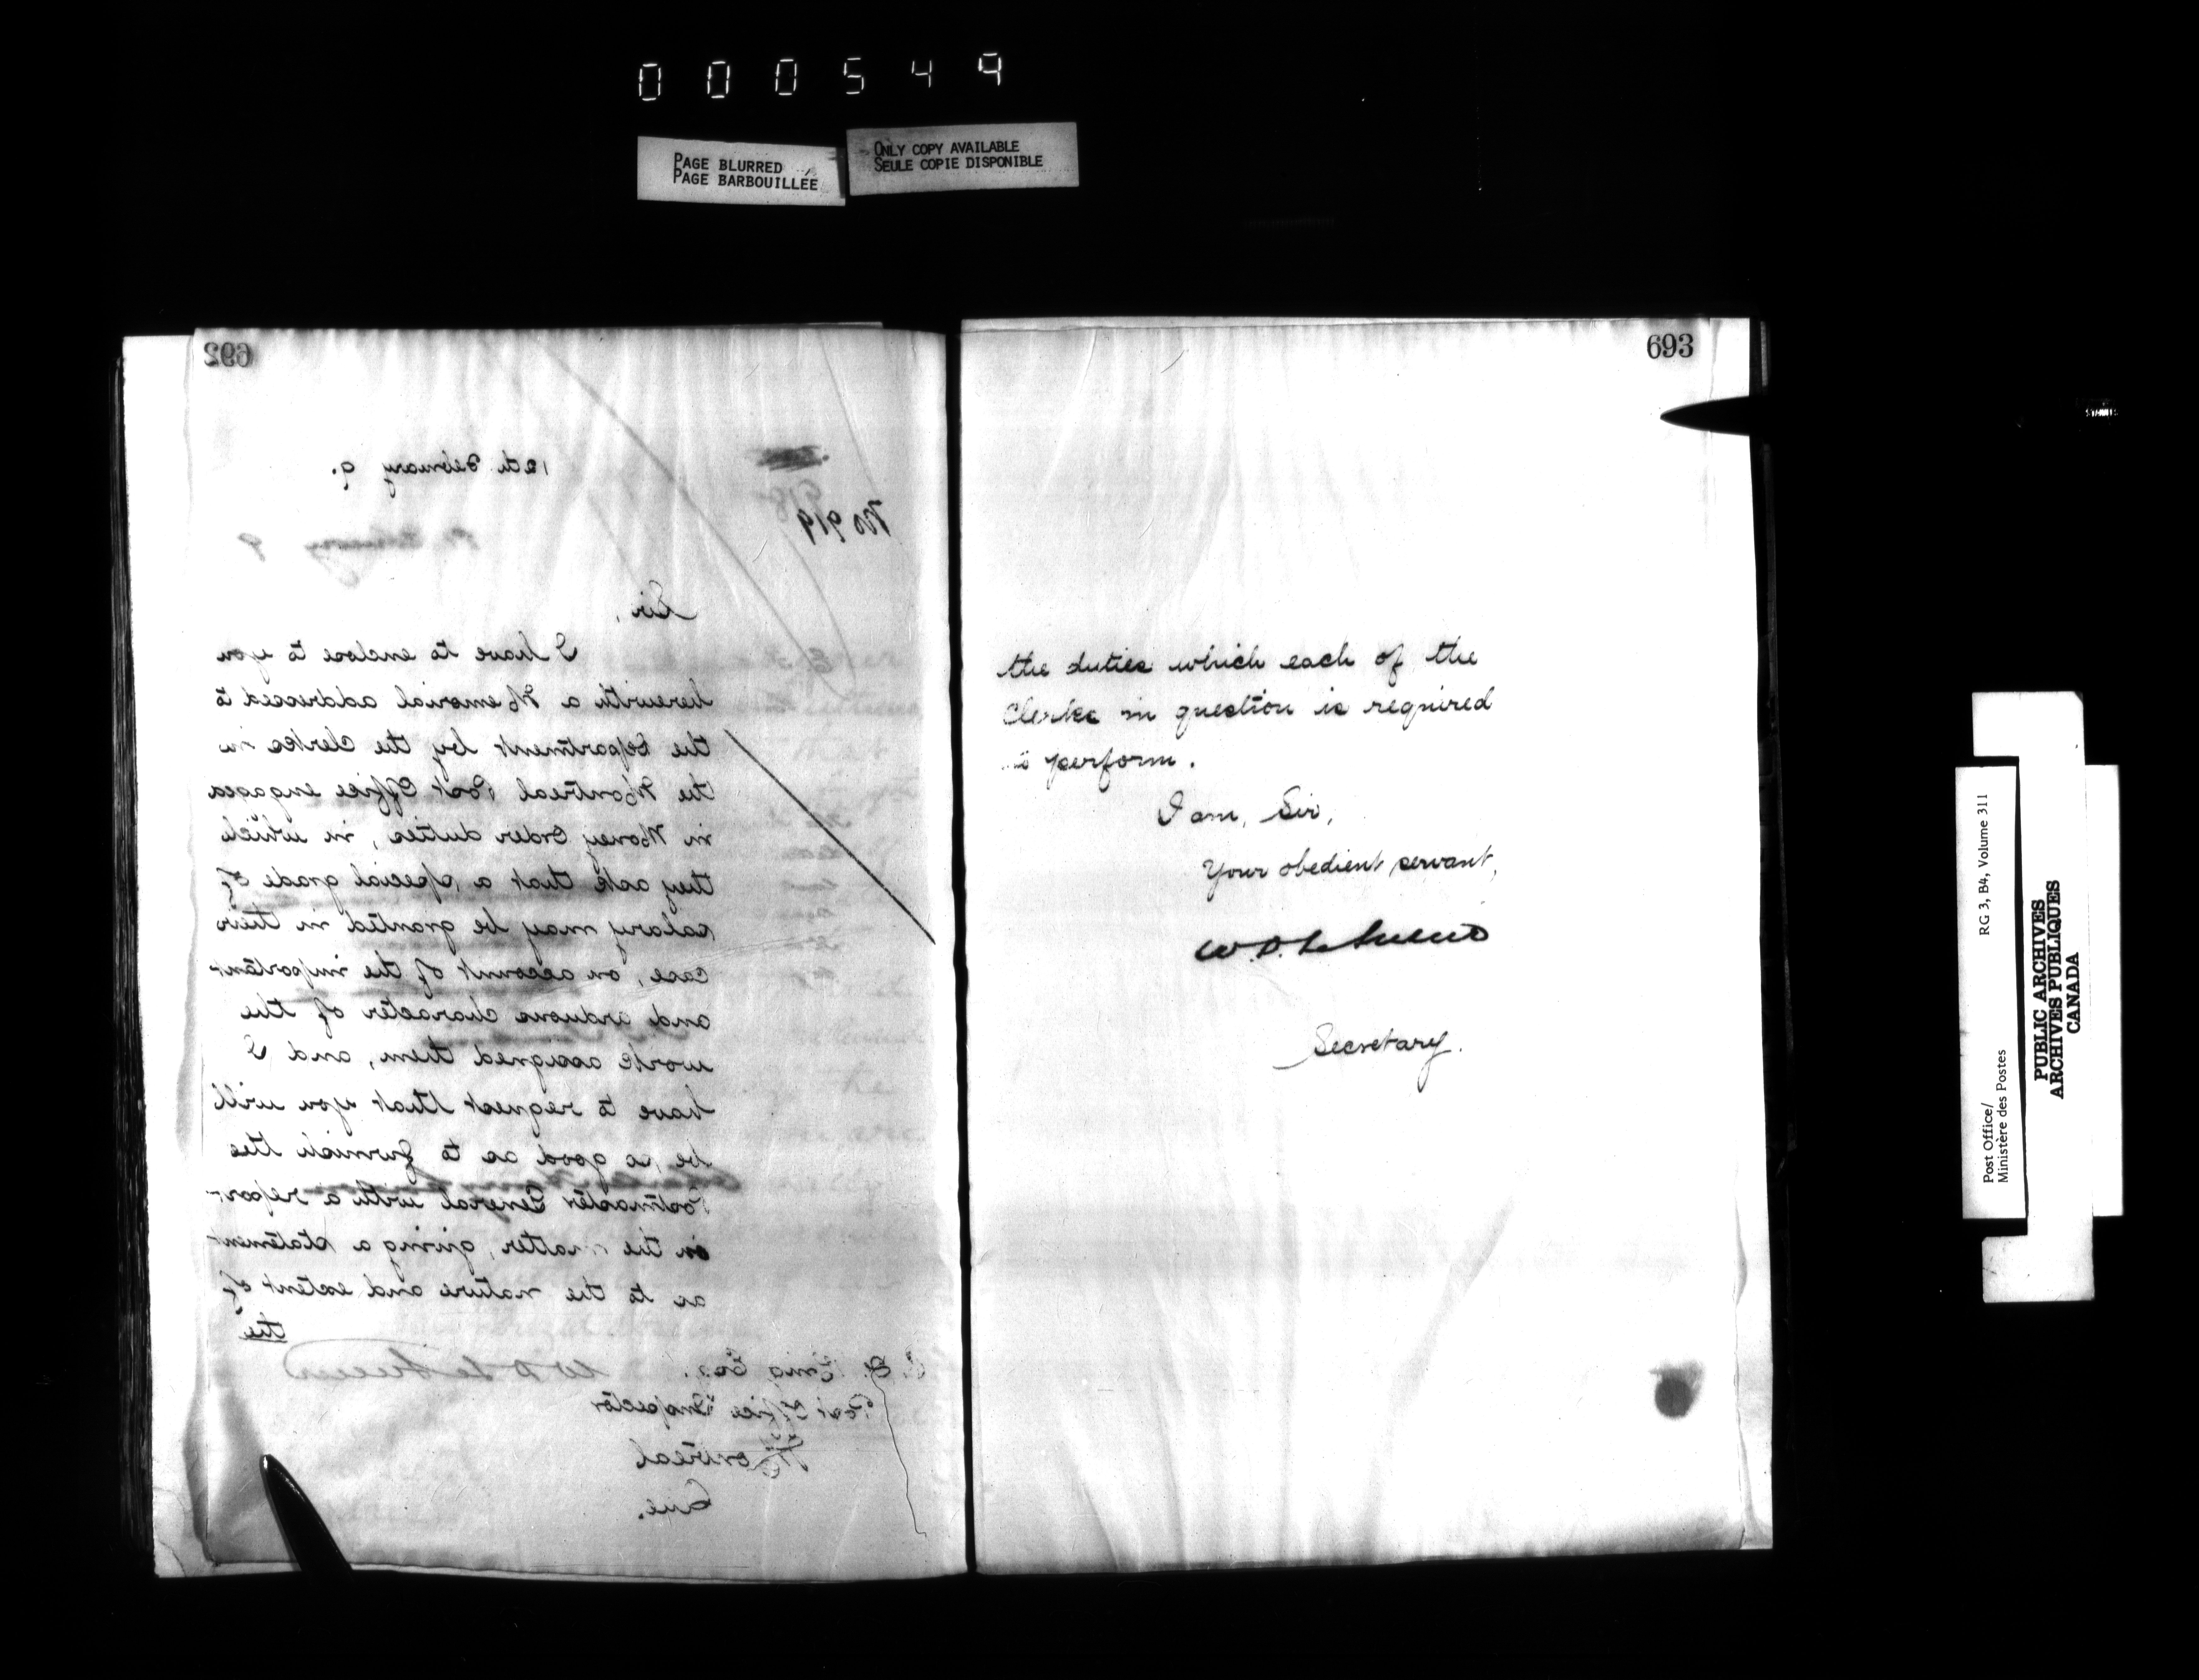 000549
PAGE BLURRED
PAGE BARBOUILLÉE
ONLY COPY AVAILABLE
SEULE COPIE DISPONIBLE
692
12th February 9.
No 919
918
February 9
Sir,
I have to enclose to you
herewith a Memorial addressed to
the Department by the clerks in
the Montreal Post Office engaged
in Money Order duties, in which
they ask that a special grade of
salary may be granted in their
case, on account of the important
and arduous character of the
work assigned them, and I
have to request that you will
be so good as to furnish the
Postmaster General with a report
in the matter, giving a statement
as to the nature and extent of
the
W D Le Sueur
King Esq.
Post Office Inspector
Montreal
Que.
693
the duties which each of the
Clerks in question is required
to perform.
I am, Sir,
Your obedient servant,
W. D. Le Sueur
Secretary.
Post Office/
Ministère des Postes
RG 3, B4, Volume 311
PUBLIC ARCHIVES
ARCHIVES PUBLIQUES
CANADA